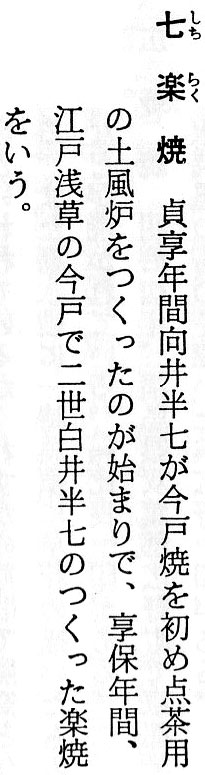 七楽焼　貞享年間向井半七が今戸焼を初め点茶用
の土風炉をつくったのが始まりで、享保年間、
江戸浅草の今戸で二世白井半七のつくった楽焼
をいう。
しち
らく